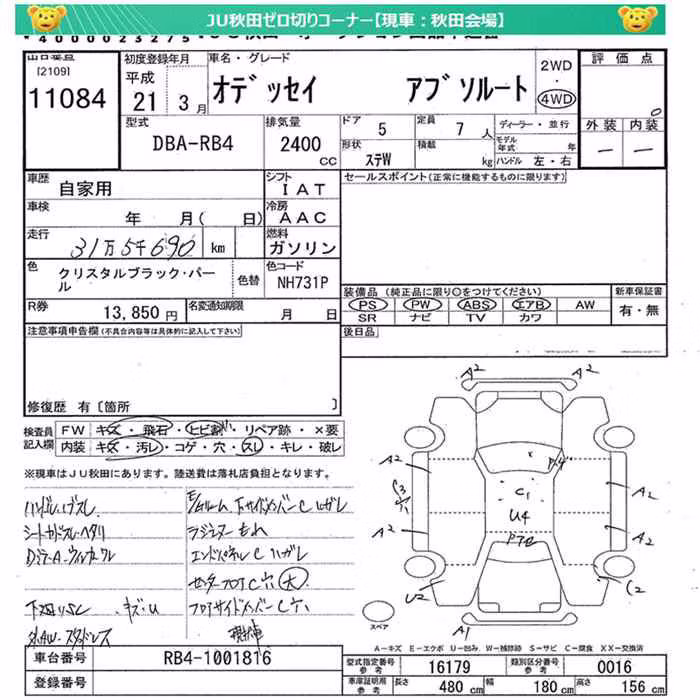 JU秋田ゼロ切りコーナー【現車：秋田会場】
出品番号
[2109]
11084
初度登録年月
平成
21 3月
車名・グレード
オデッセイ アブソルート
2WD
・
4WD
評価点
外装 内装
ー ー
型式
DBA-RB4
排気量
2400
cc
ドア 5
定員 7 人
形状 ステW
積載 kg
ディーラー・並行
モデル年式 年
ハンドル 左・右
車歴
自家用
シフト
IAT
セールスポイント(正常に機能するものに限ります)
車検
年 月( 日)
冷房
AAC
走行
31万5千690 km
燃料
ガソリン
色
クリスタルブラック・パール
色替
色コード
NH731P
装備品 (純正品に限り○をつけてください)
PS PW ABS エアB AW
SR ナビ TV カワ
新車保証書
有・無
R券
13,850 円
名変通知期限
月 日
後日品
注意事項申告欄(不具合内容等は具体的に記入して下さい)
修復歴 有〔箇所 〕
検査員記入欄
FW キズ・飛石・ヒビ割・リペア跡・×要
内装 キズ・汚レ・コゲ・穴・スレ・キレ・破レ
※現車はJU秋田にあります。陸送費は落札店負担となります。
ラジエター もれ
エンドパネル C ハガレ
センターフロアC穴 大
フロアサイドメンバーC穴
下廻りSC キズ・U
A2
A2
A2
A2
A2
A2
C1
U4
U2
C2
A1
スペア
A－キズ E－エクボ U－凹み W－補修跡 S－サビ C－腐食 XX－交換済
車台番号
RB4-1001816
登録番号
型式指定番号 参考
16179
類別区分番号 参考
0016
車庫証明用 参考
長さ 480 cm
幅 180 cm
高さ 156 cm